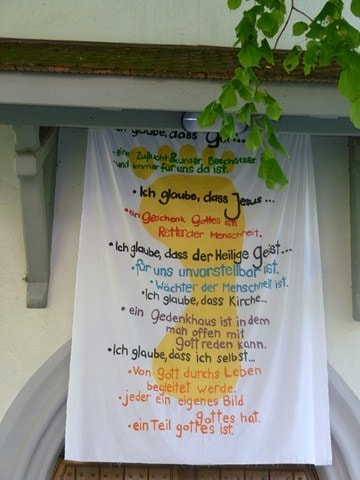 Ich glaube, dass Gott...
• eine Zuflucht & unser Beschützer
und immer für uns da ist.
• Ich glaube, dass Jesus ...
• ein Geschenk Gottes ist
Retter der Menschheit.
• Ich glaube, dass der Heilige Geist...
• für uns unvorstellbar ist.
• Wächter der Menschheit ist.
• Ich glaube, dass Kirche...
• ein Gedenkhaus ist in dem
man offen mit
Gott reden kann.
• Ich glaube, dass ich selbst...
• Von Gott durchs Leben
begleitet werde.
• jeder ein eigenes Bild
gottes hat.
• ein Teil gottes ist.